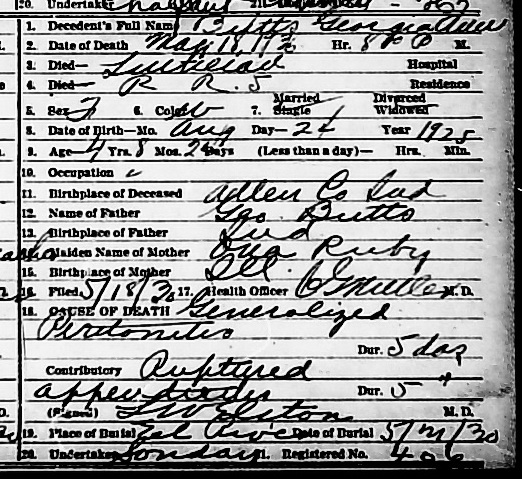 20. Undertaker
1. Decedent's Full Name Butts Georgia Ann
2. Date of Death May 18 /30 Hr. 8 P. M.
3. Died— Hospital
4. Died— R R. 5 Residence
Married Divorced
5. Sex F 6. Color W 7. Single / Widowed
8. Date of Birth—Mo. Aug Day— 24 Year 1925
9. Age— 4 Yrs. 8 Mos. 24 Days (Less than a day)— Hrs. Min.
10. Occupation
11. Birthplace of Deceased Allen Co Ind
12. Name of Father Geo. Butts
13. Birthplace of Father Ind
14. Maiden Name of Mother Ona Ruby
15. Birthplace of Mother Ill.
16. Filed 5/18/30 17. Health Officer M. D.
18. CAUSE OF DEATH Generalized
Peritonitis
Dur. 5 das
Contributory Ruptured
appendicitis Dur. 5 "
(Signed) M. D.
19. Place of Burial Date of Burial 5/21/30
20. Undertaker 21. Registered No. 406